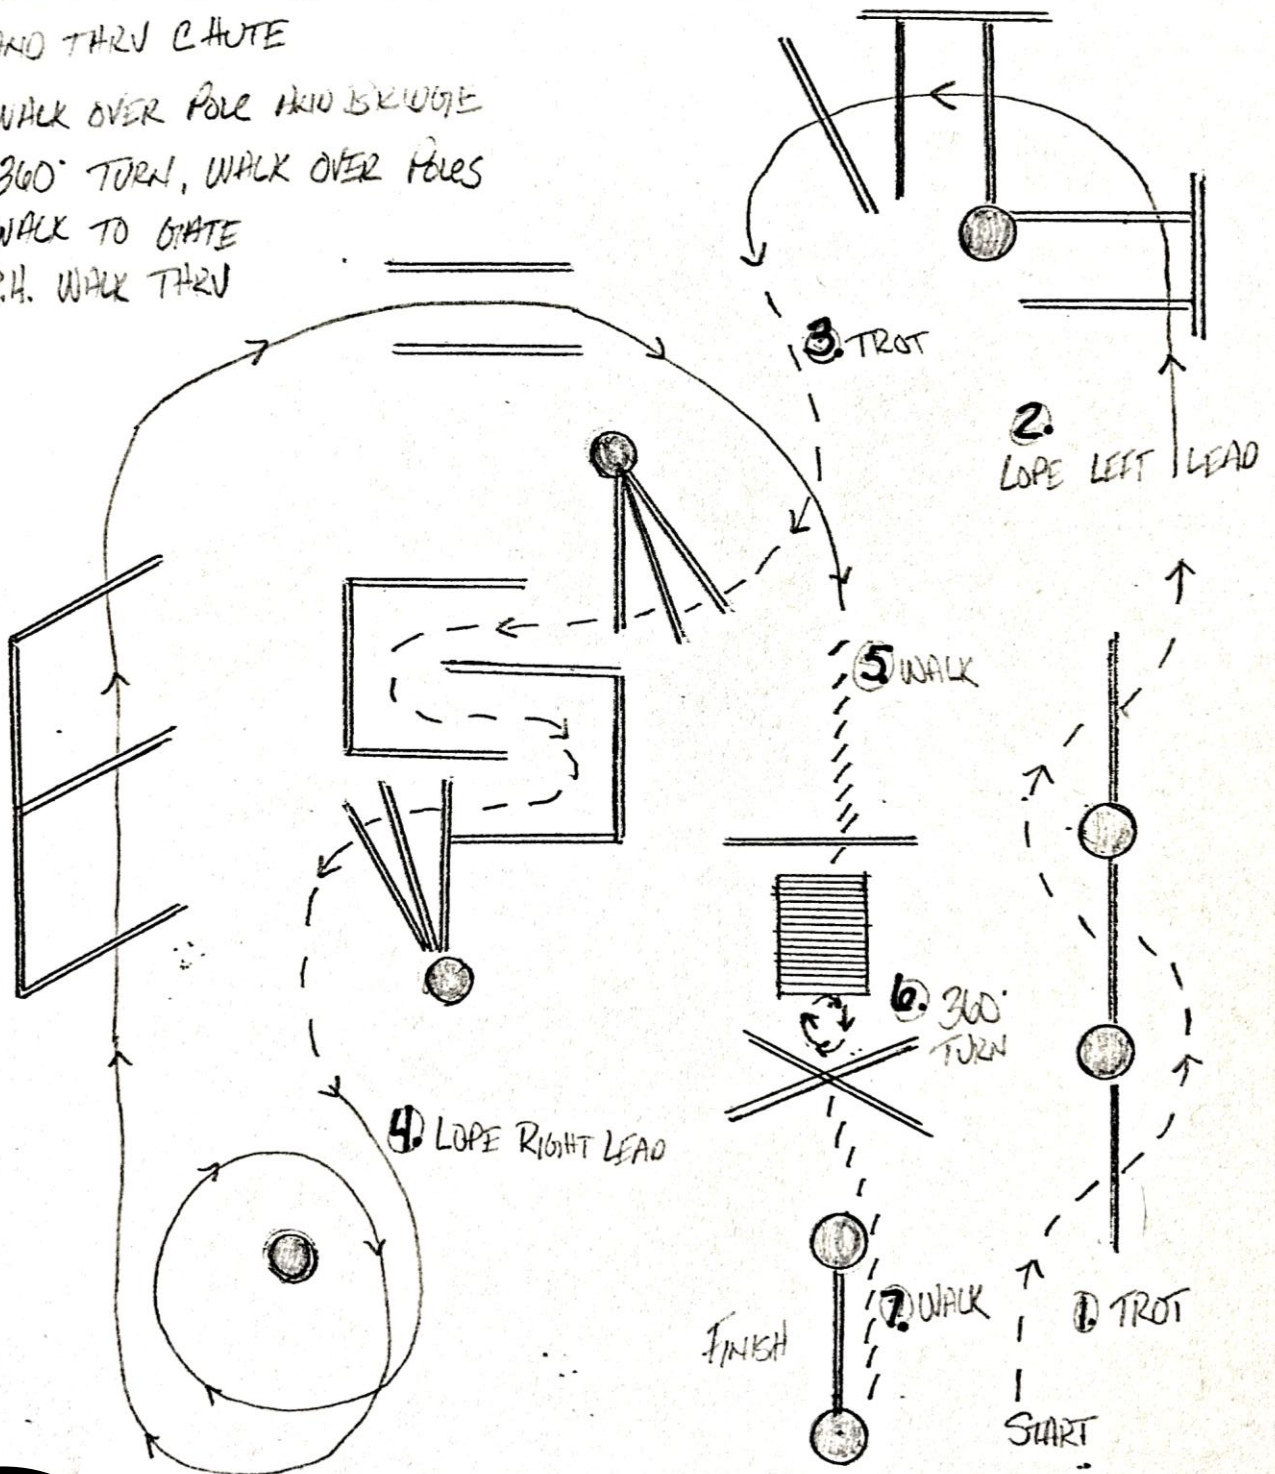 AND THRU CHUTE
WALK OVER POLE AND BRIDGE
360° TURN, WALK OVER POLES
WALK TO GATE
R.H. WALK THRU
3. TROT
2.
LOPE LEFT LEAD
5. WALK
6. 360°
TURN
4. LOPE RIGHT LEAD
7. WALK
FINISH
1. TROT
START